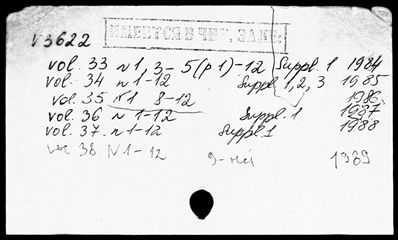 ИМЕЕТСЯ В ЧИТ. ЗАЛЕ
V3622
vol. 33 n 1, 3-5(p 1)-12 Suppl 1 1984
vol. 34 n 1-12 Suppl 1, 2, 3 1985
vol. 35 N1 8-12 1986
vol. 36 n 1-12 Suppl. 1 1987
vol. 37. n 1-12 Suppl. 1 1988
38 N 1-12 1989